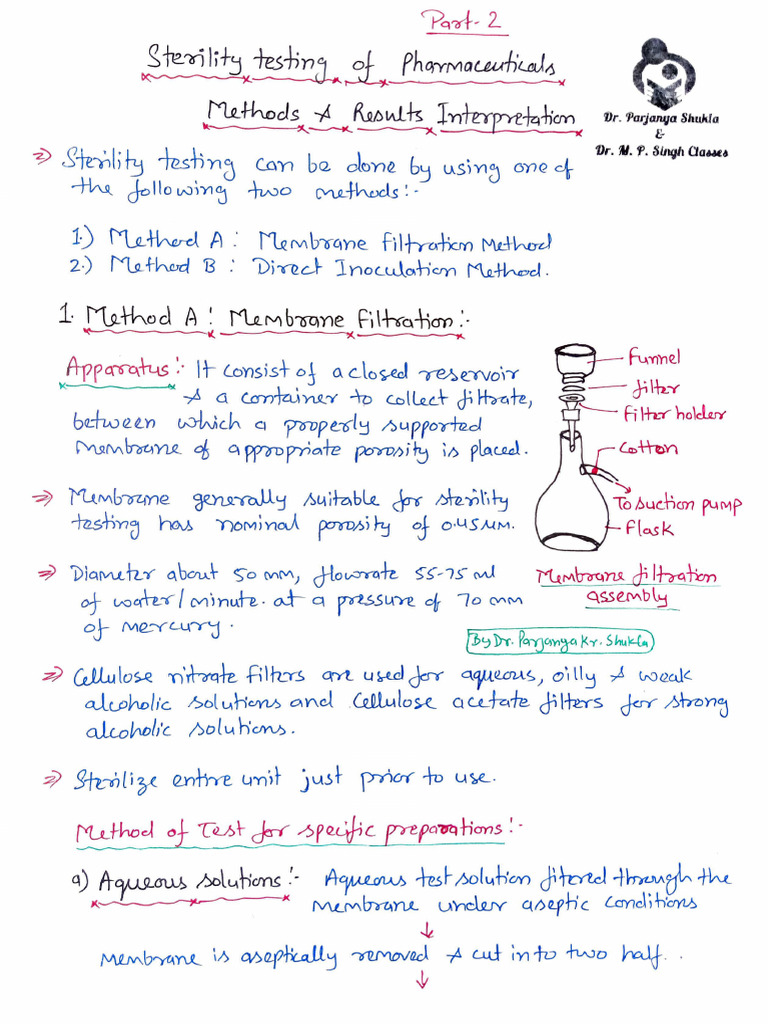 Part-2
Sterility testing of Pharmaceuticals
Methods & Results Interpretation
Dr. Parjanya Shukla
&
Dr. M. P. Singh Classes
⇒ Sterility testing can be done by using one of
the following two methods:-
1.) Method A: Membrane filtration Method
2.) Method B: Direct Inoculation Method.
1. Method A: Membrane filtration:-
Apparatus:- It consist of a closed reservoir
& a container to collect filtrate,
between which a properly supported
membrane of appropriate porosity is placed.
Funnel
filter
filter holder
Cotton
To suction pump
flask
Membrane filtration
assembly
By Dr. Parjanya Kr. Shukla
⇒ Membrane generally suitable for sterility
testing has nominal porosity of 0.45 µm.
⇒ Diameter about 50 mm, flowrate 55-75 ml
of water/minute. at a pressure of 70 mm
of mercury.
⇒ Cellulose nitrate filters are used for aqueous, oilly & weak
alcoholic solutions and cellulose acetate filters for strong
alcoholic solutions.
⇒ Sterilize entire unit just prior to use.
Method of Test for specific preparations:-
a) Aqueous solutions:- Aqueous test solution filtered through the
membrane under aseptic conditions
↓
Membrane is aseptically removed & cut into two half..
↓